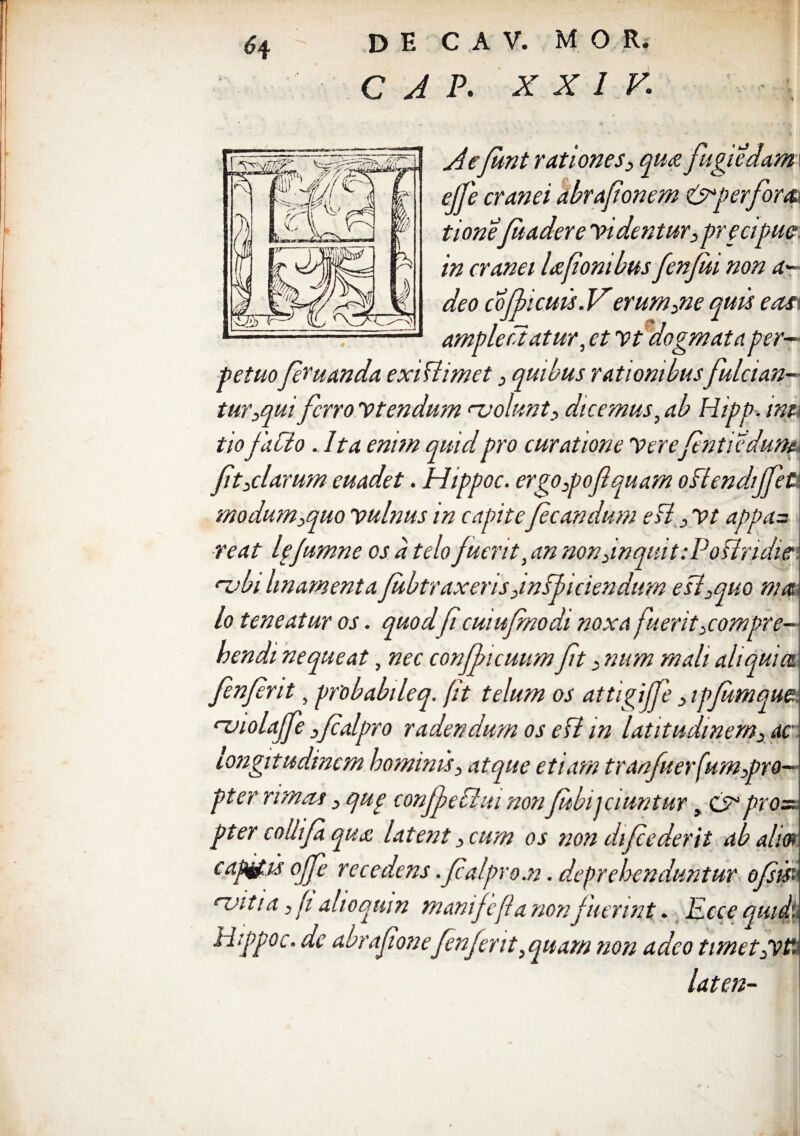 64 DE CAV. MOR.
CAP. XXIV.
HAe sunt rationes, quæ fugiēdam
esse cranei abrasionem & perfora
tionē suadere videntur, pręcipue
in cranei læsionibus sensui non a-
deo cōspicuis. Verum, ne quis eas
amplectatur, et vt dogmata per-
petuo seruanda existimet, quibus rationibus fulcian-
tur, qui ferro vtendum volunt, dicemus, ab Hipp. ini
tio facto. Ita enim quid pro curatione vere sentiēdum
sit, clarum euadet. Hippoc. ergo, postquam ostendisset
modum, quo vulnus in capite secandum est, vt appa=
reat lęsumne os à telo fuerit, an non, inquit: Postridie
vbi linamenta subtraxeris, inspiciendum est, quo ma
lo teneatur os. quod si cuiusmodi noxa fuerit, compre-
hendi nequeat, nec conspicuum sit, num mali aliquid
senserit, probabileq. sit telum os attigisse, ipsumque
violasse, scalpro radendum os est in latitudinem, ac
longitudinem hominis, atque etiam transuersum, pro-
pter rimas, quę conspectui non subijciuntur, & pro=
pter collisa quæ latent, cum os non discederit ab alio
capitis osse recedens. scalpro.n. deprehenduntur ossis
vitia, si alioquin manifesta non fuerint. Ecce quid
Hippoc. de abrasione senserit, quam non adeo timet, vt
laten-